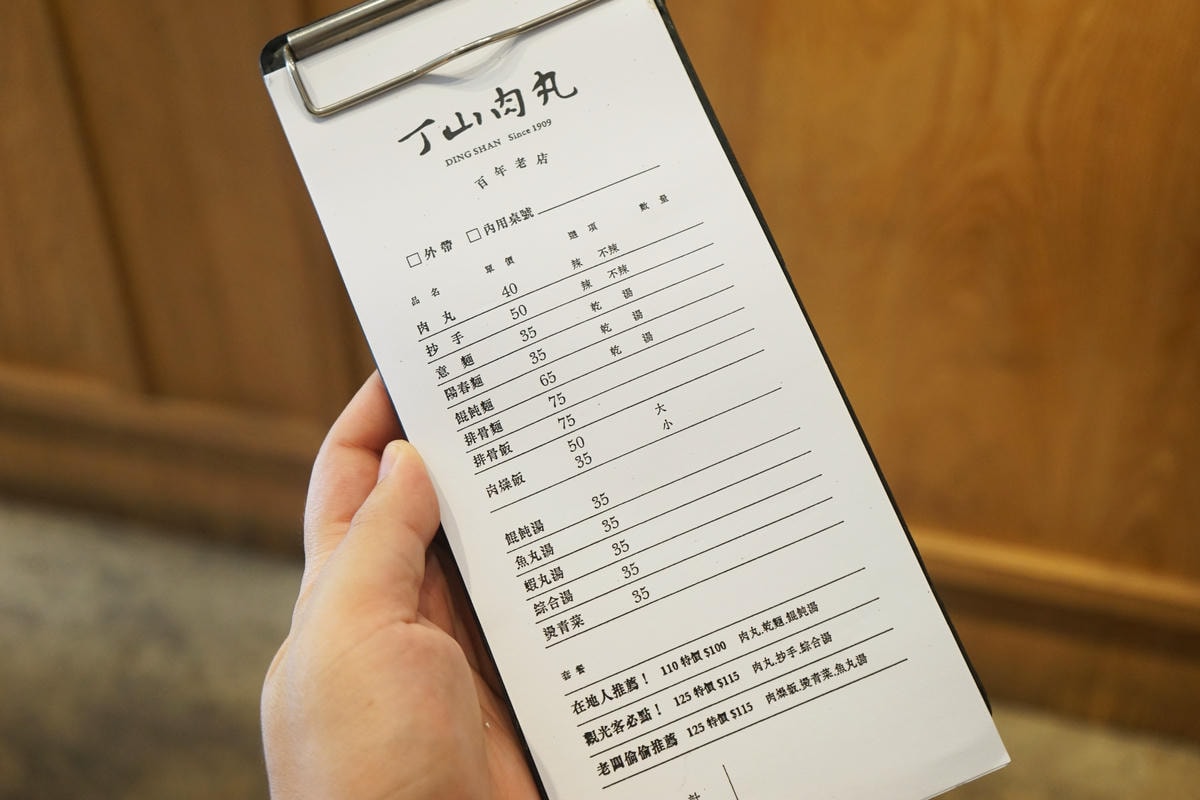 丁山肉丸
DING SHAN Since 1909
百年老店
□外帶 □內用桌號
品名 單價 選項 數量
肉丸 40 辣 不辣
抄手 50 辣 不辣
意麵 35 乾 湯
陽春麵 35 乾 湯
餛飩麵 65 乾 湯
排骨麵 75
排骨飯 75
肉燥飯 50 大
35 小
餛飩湯 35
魚丸湯 35
蝦丸湯 35
綜合湯 35
燙青菜 35
套餐
在地人推薦！ 110 特價 $100 肉丸.乾麵.餛飩湯
觀光客必點！ 125 特價 $115 肉丸.抄手.綜合湯
老闆偷偷推薦 125 特價 $115 肉燥飯.燙青菜.魚丸湯
計